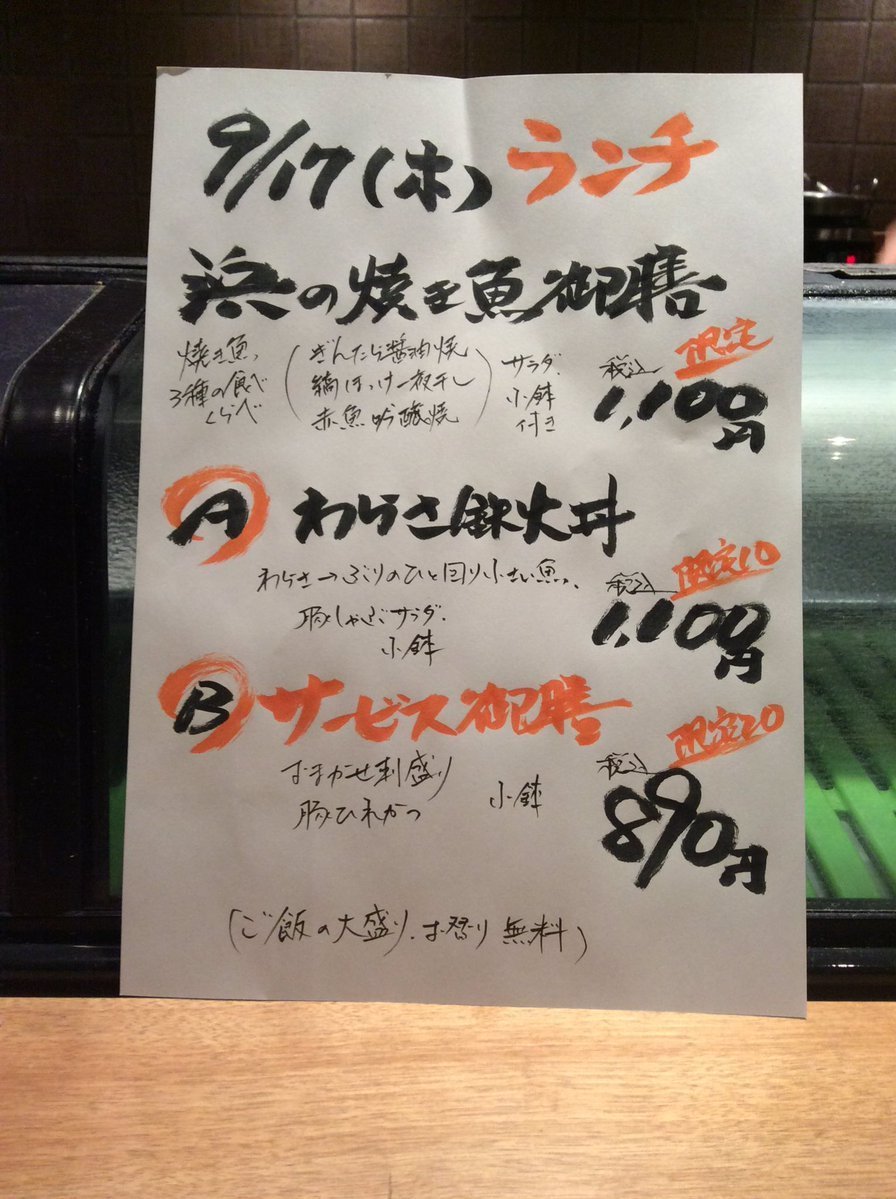 9/17(木)ランチ
浜の焼き魚御膳
焼き魚、
3種の食べ
くらべ
(ぎんだら醤油焼
縞ほっけ一夜干し
赤魚吟醸焼)
サラダ、
小鉢
付き
限定
税込
1,100円
A わらさ鉄火丼
わらさ→ぶりのひと回り小さい魚。
豚しゃぶサラダ、
小鉢
限定10
税込
1,100円
B サービス御膳
おまかせ刺盛り
豚ひれかつ
小鉢
限定20
税込
890円
(ご飯の大盛り、お替り無料)